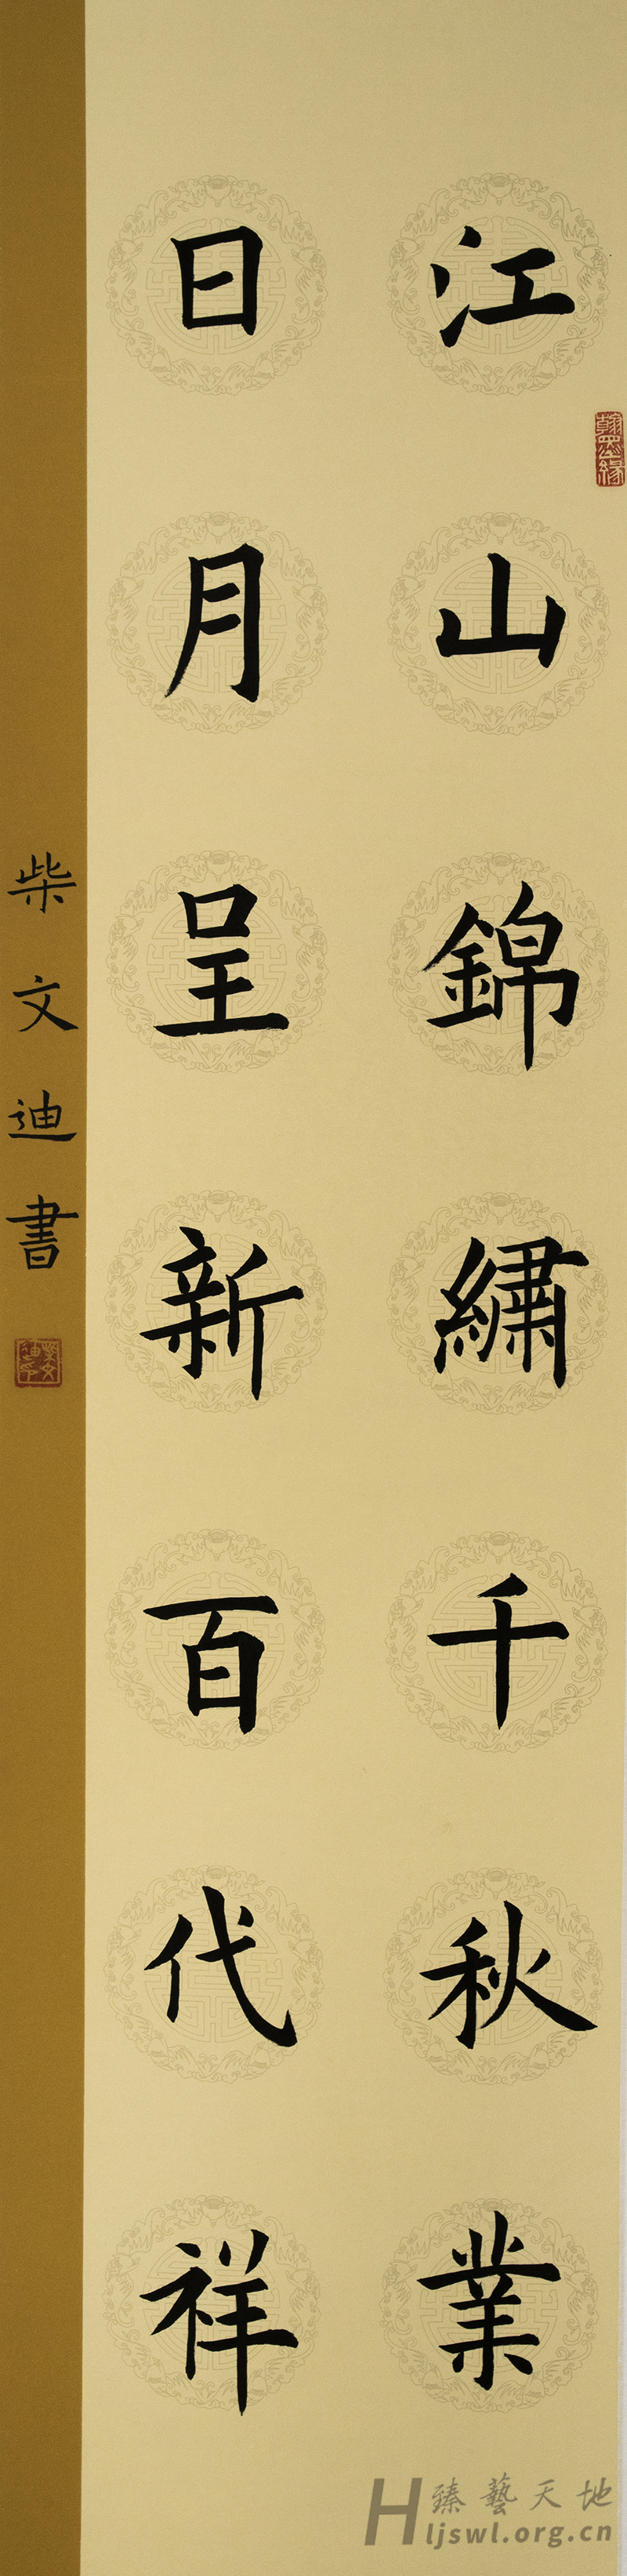 江山錦繡千秋業
日月呈新百代祥
柴文迪書
翰墨緣
臻藝天地
Hljswl.org.cn